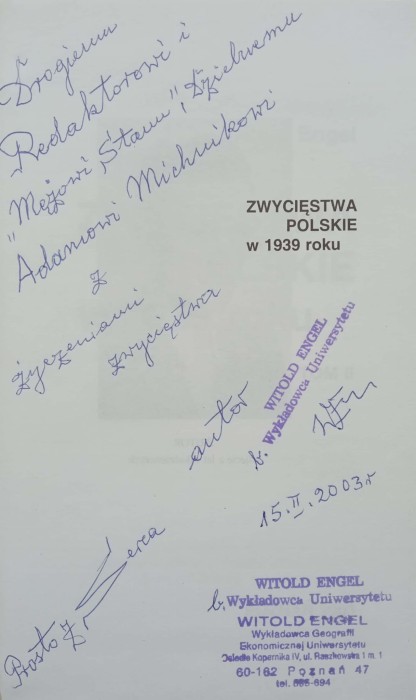 Drogiemu
Redaktorowi i
"Mężowi Stanu", Dzielnemu
Adamowi Michnikowi
z
życzeniami
zwycięstwa
ZWYCIĘSTWA
POLSKIE
w 1939 roku
autor
WITOLD ENGEL
b. Wykładowca Uniwersytetu
15.II.2003r
Prosto z Serca
WITOLD ENGEL
b. Wykładowca Uniwersytetu
WITOLD ENGEL
Wykładowca Geografii
Ekonomicznej Uniwersytetu
Osiedle Kopernika IV, ul. Raszkowska 1 m. 1
60-182 Poznań 47
tel.